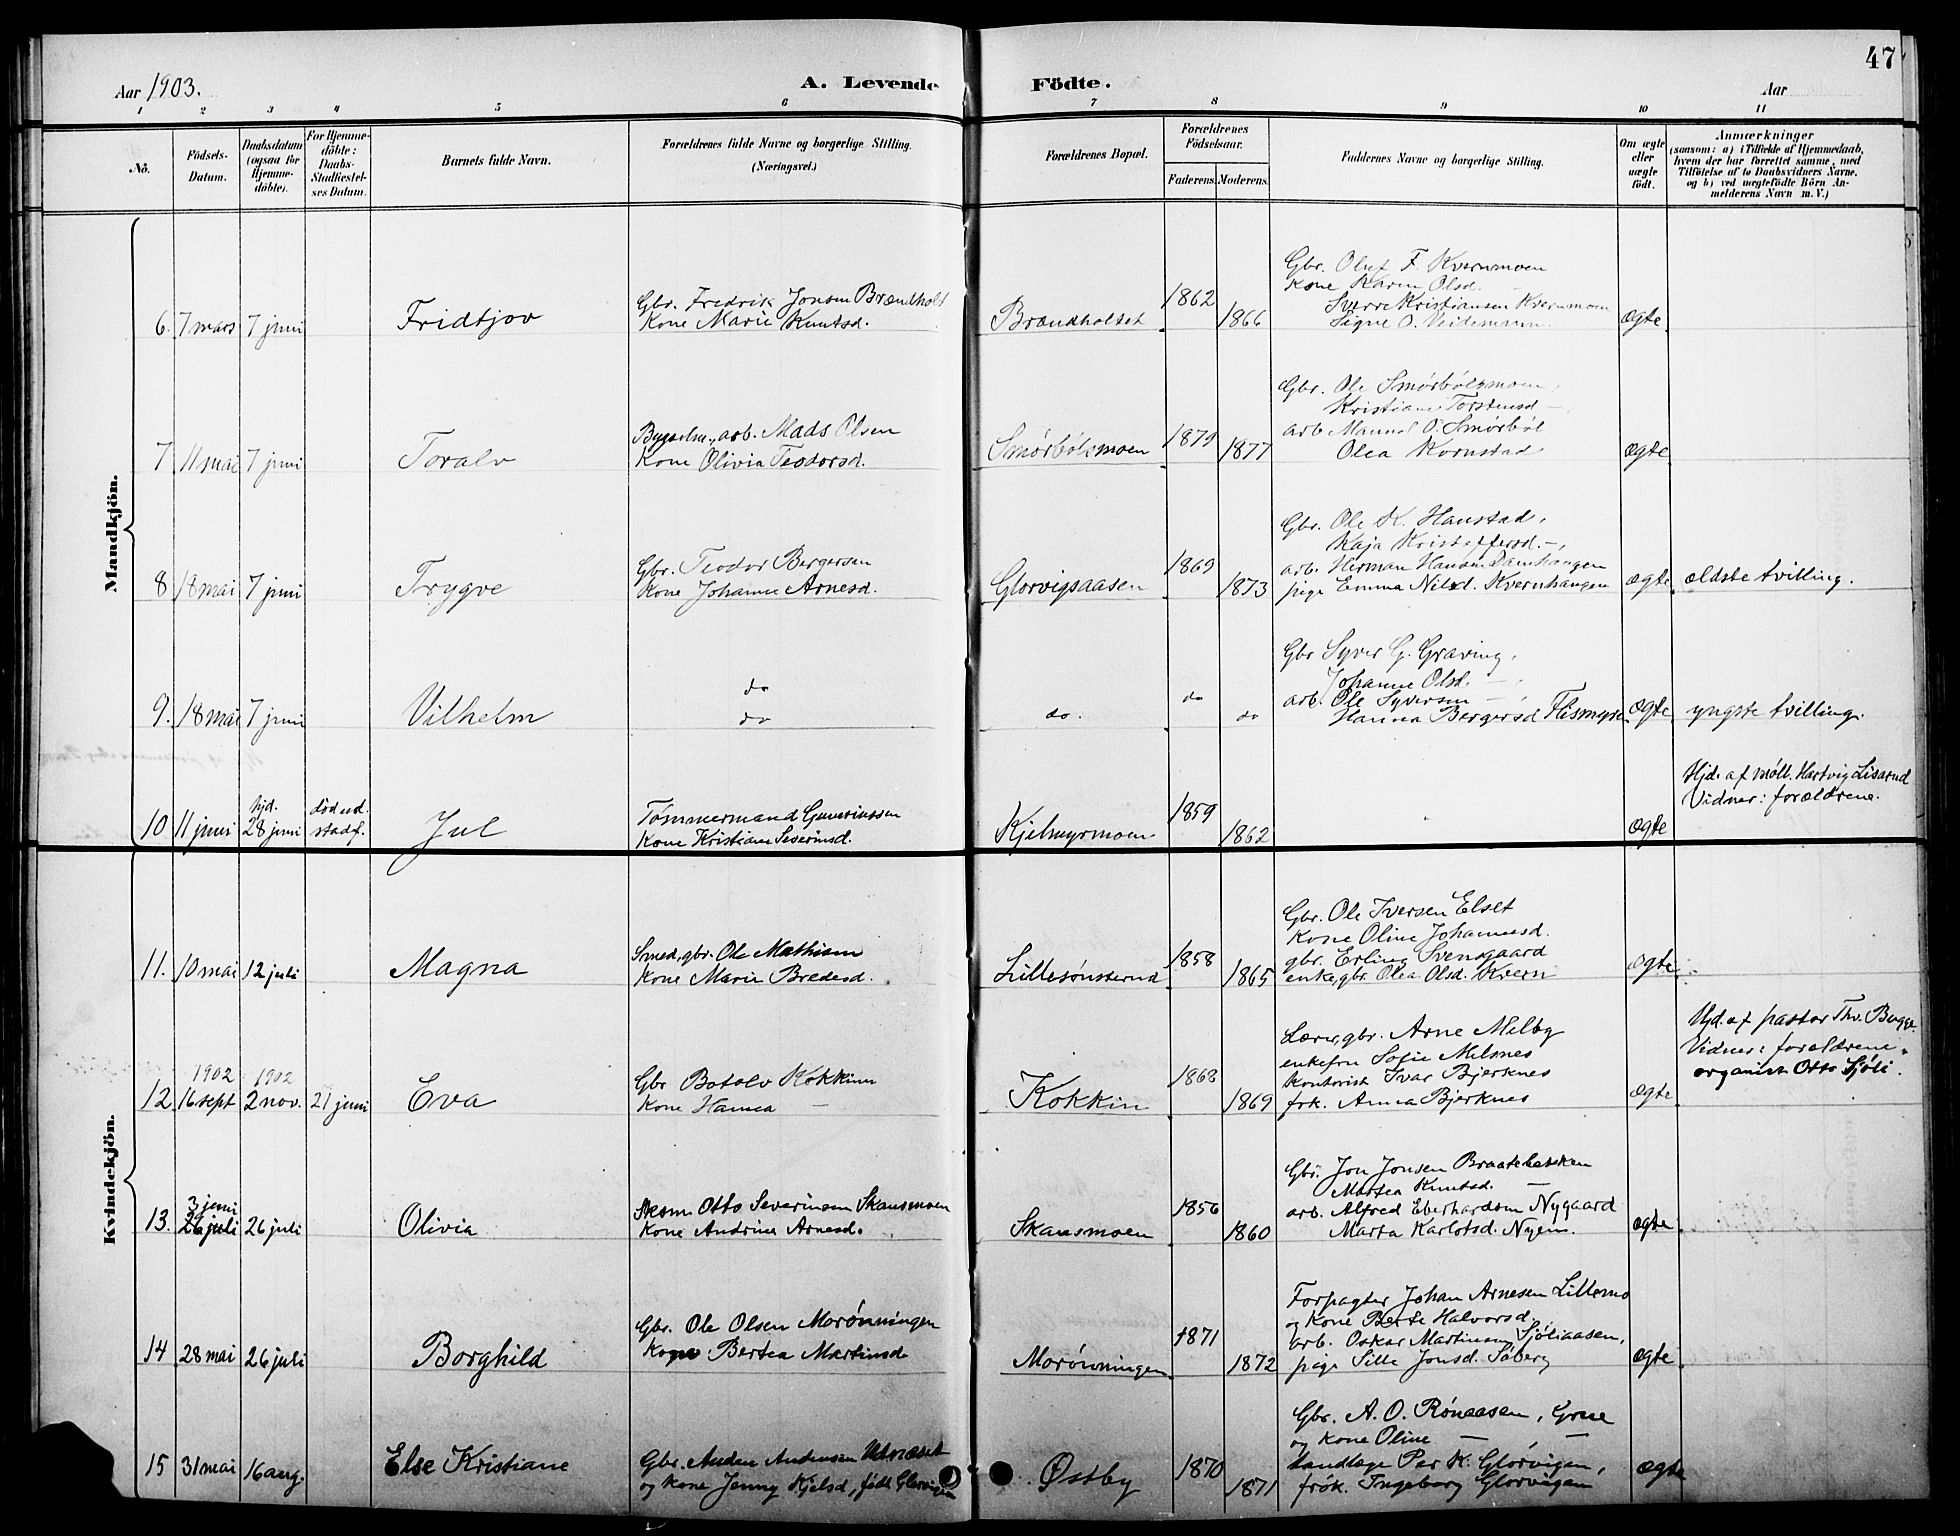 47
Aar 1903. A. Levende Födte. Aar
1 2 3 4 5 6 7 8 9 10 11
No. Födsels-Datum. Daabsdatum (ogsaa for Hjemme-döbte). For Hjemme-döbte: Daabs-Stadfæstel-ses Datum. Barnets fulde Navn. Forældrenes fulde Navne og borgerlige Stilling. (Næringsvei.) Forældrenes Bopæl. Forældrenes Födselsaar. Faderens. Moderens. Faddernes Navne og borgerlige Stilling. Om ægte eller uægte födt. Anmærkninger (saasom: a) i Tilfælde af Hjemmedaab, hvem der har forrettet samme, med Tilföielse af to Daabsvidners Navne. og b) ved uægtefödte Börn An-melderens Navn m. V.)
Mandkjön.
Gbr. Oluf F. Kvernmoen
Kone Karen Olsd. —
Gbr. Fredrik Jonsen Brændholt 1862 Sverre Kristiansen Kvernmoen
6. 7 mars 7 juni Fridtjov Kone Marie Knutsd. Brændholtet 1866 Signe O. Veidemann. ægte
Gbr. Ole Smörbölsmoen,
Kristiane Torstensd —
arb. Mads Olsen 1879 arb O. Smörböl
7 11 mai 7 juni Toralv Kone Olivia Teodorsd. Smörbölsmoen 1877 Olea Kornstad ægte
Gbr. Ole K. Hanstad,
Kaja Kristoffersd. —,
Gbr. Teodor Bergersen 1869 arb. Herman Hansen
8 18 mai 7 juni Trygve Kone Johanne Arnesd. Glorvigsaasen 1873 pige Emma Nilsd. Kvernhaugen ægte ældste tvilling.
Gbr Syver G. Graving,
Johanne Olsd. —,
do do arb. Ole Syversen —
9. 18 mai 7 juni Vilhelm do do. do Hanna Bergersd Flismyren. ægte yngste tvilling.
Hjd. af möll. Hartvig Lisarud
hjd. död ud. Tømmermand Gunerius Vidner: forældrene.
10 11 juni 28 juni stadf. Jul Kone Kristiane Severinsd. Kjelmyrmoen 1859 1862 ægte
Kvindekjön.
Gbr. Ole Iversen Elset
Kone Oline Johannesd.
Smed, gbr. Ole Mathisen 1858 gbr. Erling Svensgaard
11. 10 mai 12 juli Magna Kone Marie Bredesd. Lillesönsterud 1865 enke, gbr. Olea Olsd. Kvern ægte
Lærer, gbr. Arne Melby Hjd. af pastor Thv. Bugge.
enkefru Sofie Melsnes Vidner: forældrene,
1902 1902 Gbr Botolv Kokkinn 1868 Kontorist Ivar Bjerknes organist Otto Sjöli.
12 16 sept 2 nov. 21 juni Eva Kone Hanna — Kokkin 1869 frk. Anna Bjerknes ægte
Gbr. Jon Jonsen Braatebakken
Martea Knutsd. —
3 juni Otto Severinsen Skansmoen 1856 arb. Alfred Eberhardsen Nygaard
13. 26 juli 26 juli Olivia Kone Andrine Arnesd. Skansmoen 1860 Marta Karlotsd. Nyen. ægte
Forpagter Johan Arnesen Lillemo
og Kone Berte Halvorsd.
Gbr. Ole Olsen Morönningen 1871 arb. Oskar Martinsen Sjöliaasen,
14 28 mai 26 juli Borghild Kone Bertea Martinsd. Morönningen 1872 pige Sille Jonsd. Söberg ægte
Gbr. A. O. Rönaasen, Grue
og kone Oline — —
Gbr. Anders Andersen 1870 tandlæge Per K. Glorvigen,
15 31 mai 16 aug. Else Kristiane og kone Jenny Kjelsd, födt Glorvigen Østby 1871 frök. Ingeborg Glorvigen ægte